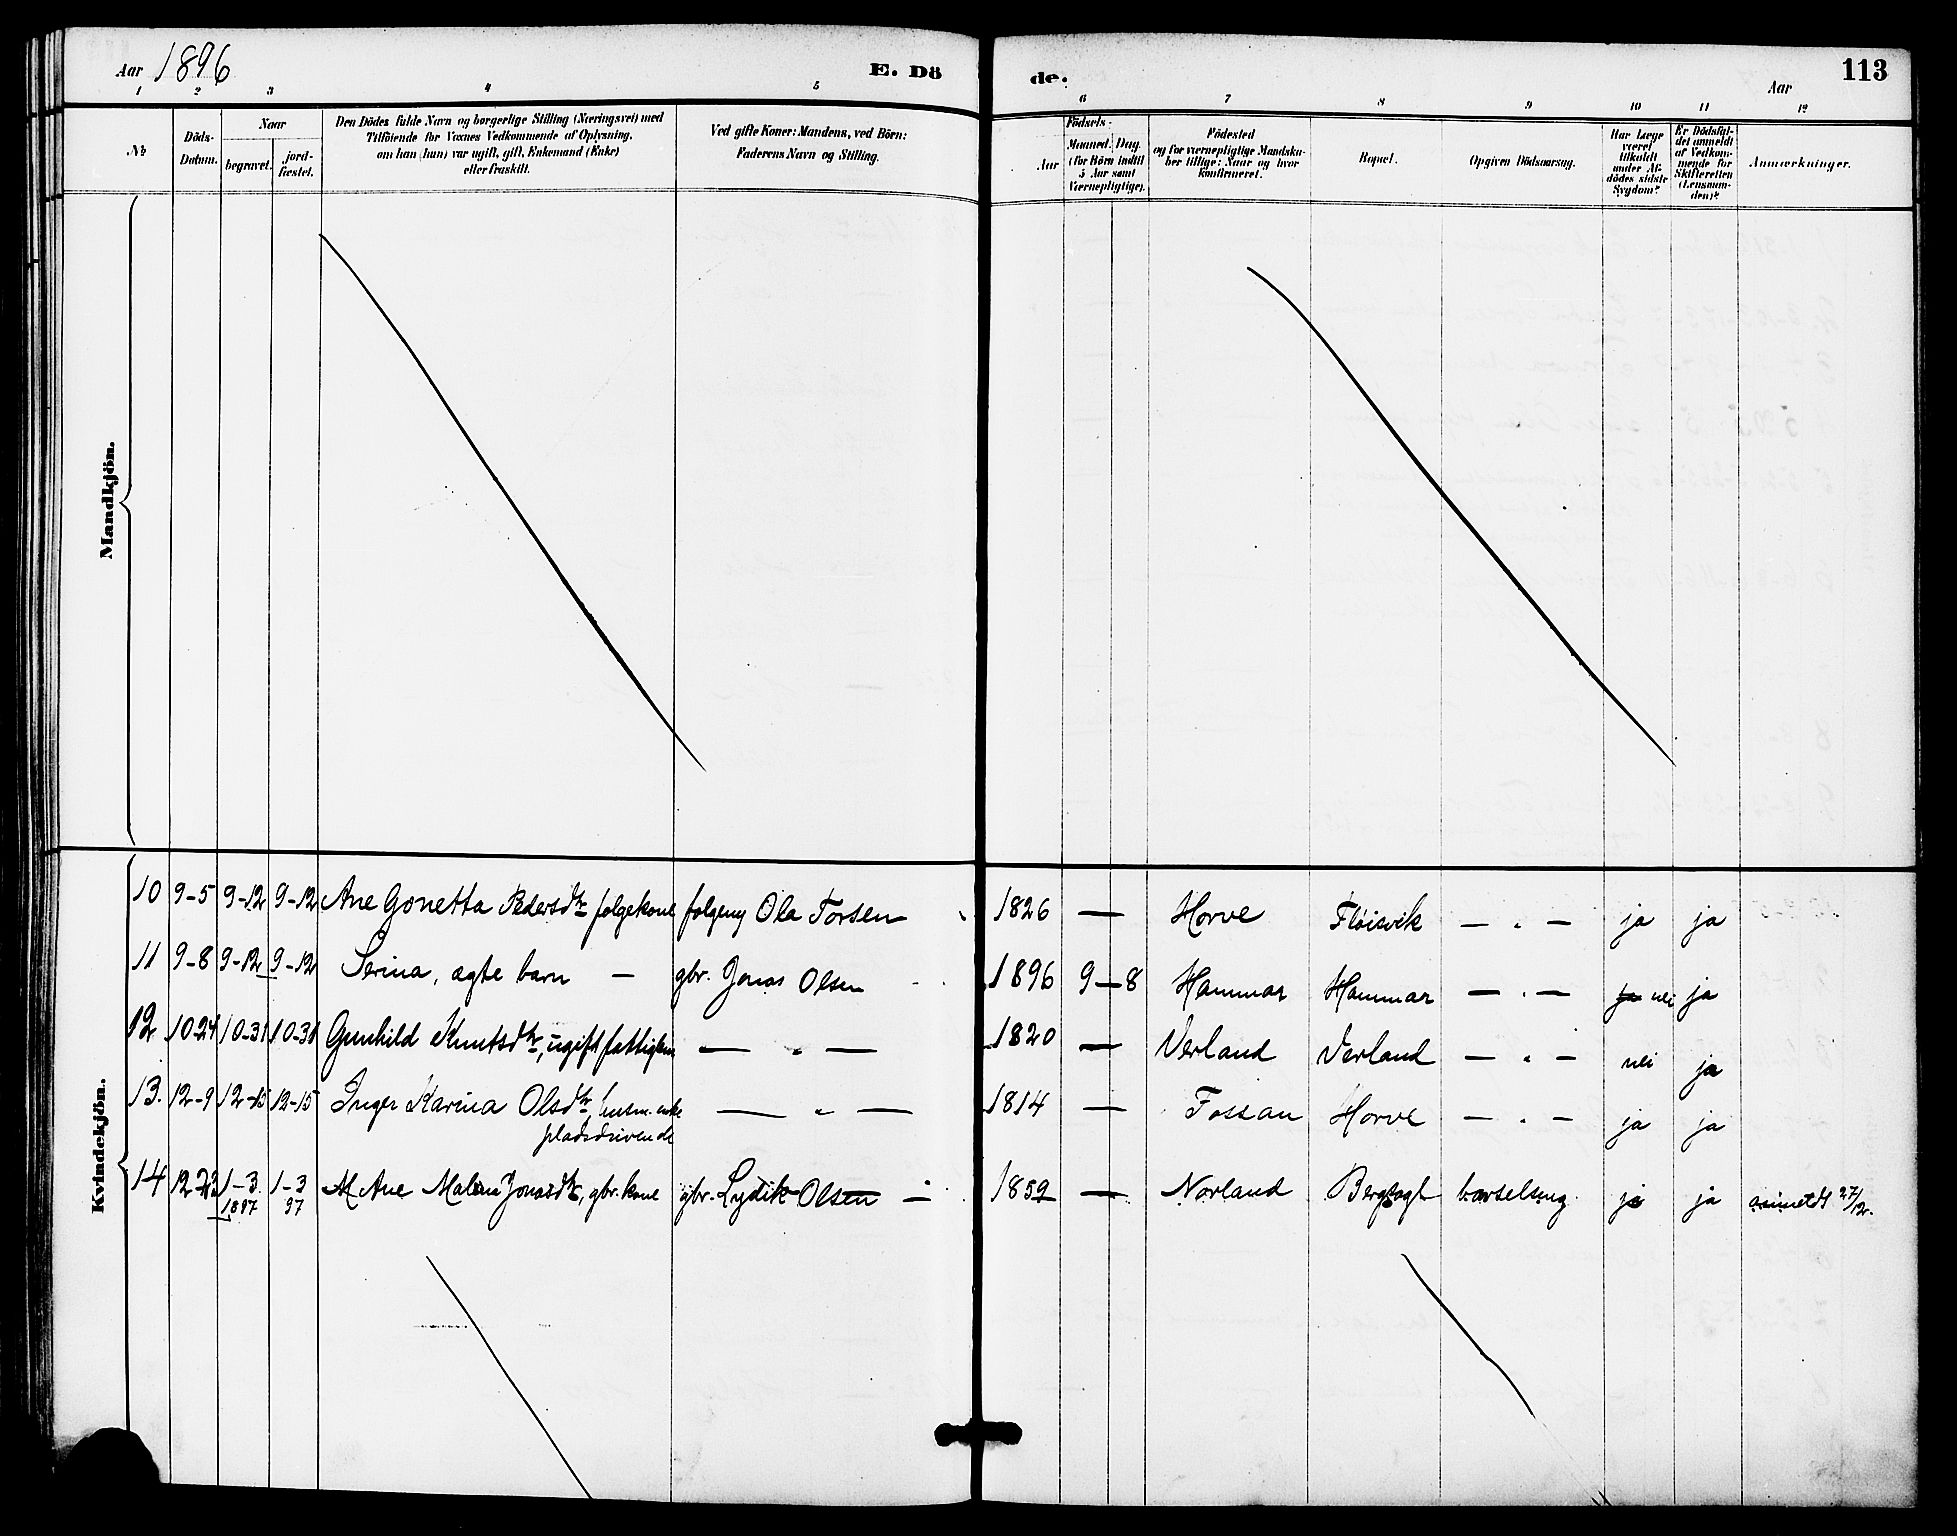 Aar 1896
E. Dö
de.
Aar
113
1 2 3 4 5 6 7 8 9 10 11 12
№
Döds-
Datum.
Naar
begravet.
jord-
fæstet.
Den Dödes fulde Navn og borgerlige Stilling (Næringsvei) med
Tilföiende for Voxnes Vedkommende af Oplysning,
om han (hun) var ugift, gift, Enkemand (Enke)
eller fraskilt.
Ved gifte Koner: Mandens, ved Börn:
Faderens Navn og Stilling.
Aar
Födsels-
Maaned. Dag.
(for Börn indtil
5 Aar samt
Værnepligtige).
Födested
og for værnepligtige Mandska-
ber tillige: Naar og hvor
konfirmeret.
Bopæl.
Opgiven Dödsaarsag.
Har Læge
været
tilkaldt
under Af-
dödes sidste
Sygdom?
Er Dödsfal-
det anmeldt
af Vedkom-
mende for
Skifteretten
(Lensman-
den)?
Anmærkninger.
Mandkjön.
Kvindekjön.
10 9-5 9-12 9-12 Ane Gonetta Pedersdtr folgekone folgem Ola Torsen 1826 — Horve Fløisvik — „ — ja ja
11 9-8 9-12 9-12 Serina, ægte barn — gbr. Jonas Olsen 1896 9-8 Hammar Hammar — „ — ja nei ja
12 10-24 10-31 10-31 Gunhild Knutsdtr, ugift fattiglem — „ — 1820 — Verland Verland — „ — nei ja
13. 12-9 12-15 12-15 Inger Karina Olsdtr, husm. enke — „ — 1814 — Fossan Horve — „ — ja ja
pladsdrivende
14 12-23 1-3 1-3 Ane Malena Jonasdtr, gbr. kone gbr. Lydik Olsen — 1859 — Norland Bergtagt barselseng ja ja anmeldt 27/12.
1897 97